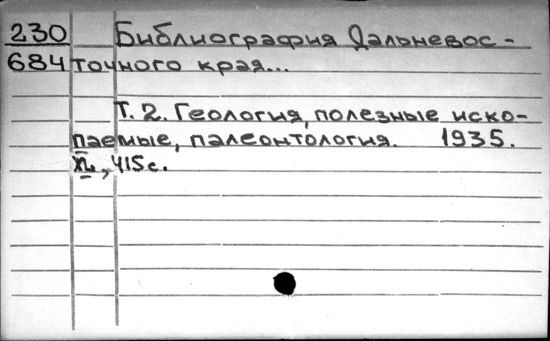 230 Библиография Дальневос-
684 точного края...
Т. 2. Геология, полезные иско-
паемые, палеонтология. 1935.
XL, 415с.